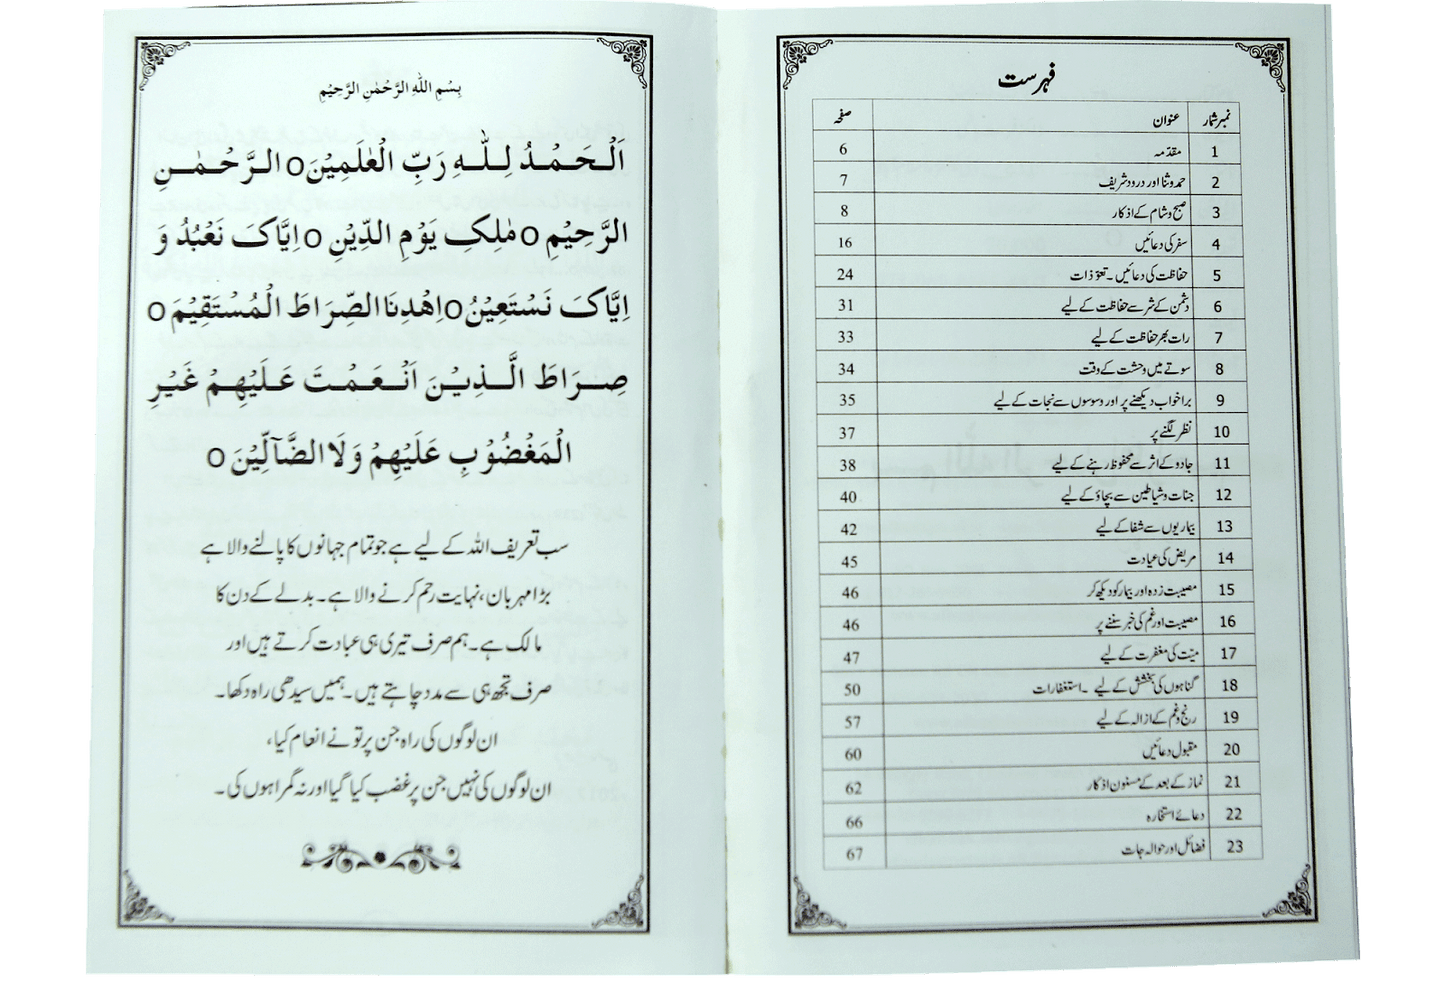 بِسْمِ اللهِ الرَّحْمٰنِ الرَّحِيْمِ
اَلْحَمْدُ لِلّٰهِ رَبِّ الْعٰلَمِيْنَo الرَّحْمٰنِ
الرَّحِيْمِ o مٰلِكِ يَوْمِ الدِّيْنِ o اِيَّاكَ نَعْبُدُ وَ
اِيَّاكَ نَسْتَعِيْنُo اِهْدِنَا الصِّرَاطَ الْمُسْتَقِيْمَ o
صِرَاطَ الَّذِيْنَ اَنْعَمْتَ عَلَيْهِمْ غَيْرِ
الْمَغْضُوْبِ عَلَيْهِمْ وَلَا الضَّآلِّيْنَ o
سب تعریف اللہ کے لیے ہے جو تمام جہانوں کا پالنے والا ہے
بڑا مہربان، نہایت رحم کرنے والا ہے۔ بدلے کے دن کا
مالک ہے۔ ہم صرف تیری ہی عبادت کرتے ہیں اور
صرف تجھ ہی سے مدد چاہتے ہیں۔ ہمیں سیدھی راہ دکھا۔
ان لوگوں کی راہ جن پر تو نے انعام کیا،
ان لوگوں کی نہیں جن پر غضب کیا گیا اور نہ گمراہوں کی۔
فہرست
نمبر شمار عنوان صفحہ
1 مقدمہ 6
2 حمد و ثنا اور درود شریف 7
3 صبح و شام کے اذکار 8
4 سفر کی دعائیں 16
5 حفاظت کی دعائیں۔ تعوّذات 24
6 دشمن کے شر سے حفاظت کے لیے 31
7 رات بھر حفاظت کے لیے 33
8 سوتے میں وحشت کے وقت 34
9 برا خواب دیکھنے پر اور وسوسوں سے نجات کے لیے 35
10 نظر لگنے پر 37
11 جادو کے اثر سے محفوظ رہنے کے لیے 38
12 جنات و شیاطین سے بچاؤ کے لیے 40
13 بیماریوں سے شفا کے لیے 42
14 مریض کی عیادت 45
15 مصیبت زدہ اور بیمار کو دیکھ کر 46
16 مصیبت اور غم کی خبر سننے پر 46
17 میّت کی مغفرت کے لیے 47
18 گناہوں کی بخشش کے لیے ۔ استغفارات 50
19 رنج و غم کے ازالہ کے لیے 57
20 مقبول دعائیں 60
21 نماز کے بعد کے مسنون اذکار 62
22 دعائے استخارہ 66
23 فضائل اور حوالہ جات 67